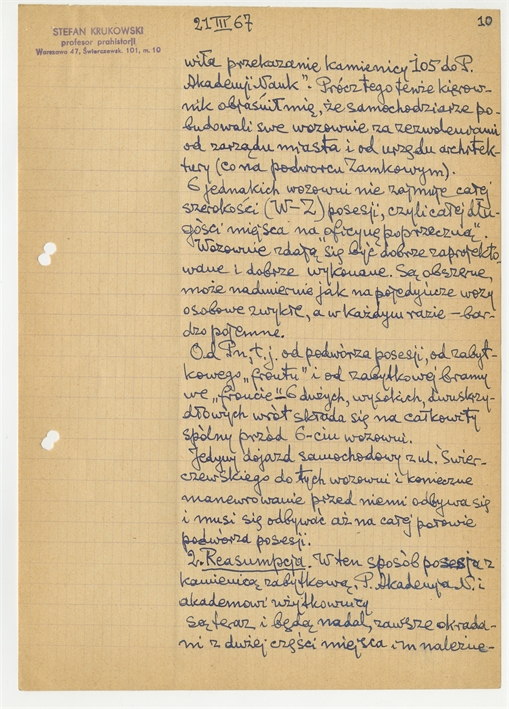 STEFAN KRUKOWSKI
profesor prahistorji
Warszawa 47, Świerszewsk. 101, m. 10
21 III 67
10
wiła przekazanie kamienicy 105 do P.
Akademji Nauk". Prócz tego tenże kierow-
nik objaśnił mię, że samochodziarze po-
budowali swe wozownie za zezwoleniami
od zarządu miasta i od urzędu architek-
tury (co na podworcu Zamkowym).
6 jednakich wozowni nie zajmuje całej
szerokości (W-Z) posesji, czyli całej dłu-
gości miejsca na "oficynę poprzeczną".
Wozownie zdają się być dobrze zaprojekto-
wane i dobrze wykonane. Są obszerne,
może nadmiernie jak na pojedyńcze wozy
osobowe zwykłe, a w każdym razie – bar-
dzo pojemne.
Od Pn, t.j. od podwórza posesji, od zabyt-
kowego "frontu" i od zabytkowej bramy
we "froncie" – 6 dużych, wysokich, dwuskrzy-
dłowych wrót składa się na całkowity
spólny przód 6-ciu wozowni.
Jedyny dojazd samochodowy z ul. Świer-
czewskiego do tych wozowni i konieczne
manewrowanie przed niemi odbywa się
i musi się odbywać aż na całej połowie
podwórza posesji.
2. Reasumpcja. W ten sposób posesja z
kamienicą zabytkową, P. Akademja N. i
akademowi użytkownicy
są teraz i będą nadal, zawsze okrada-
ni z dużej części miejsca, im należne-